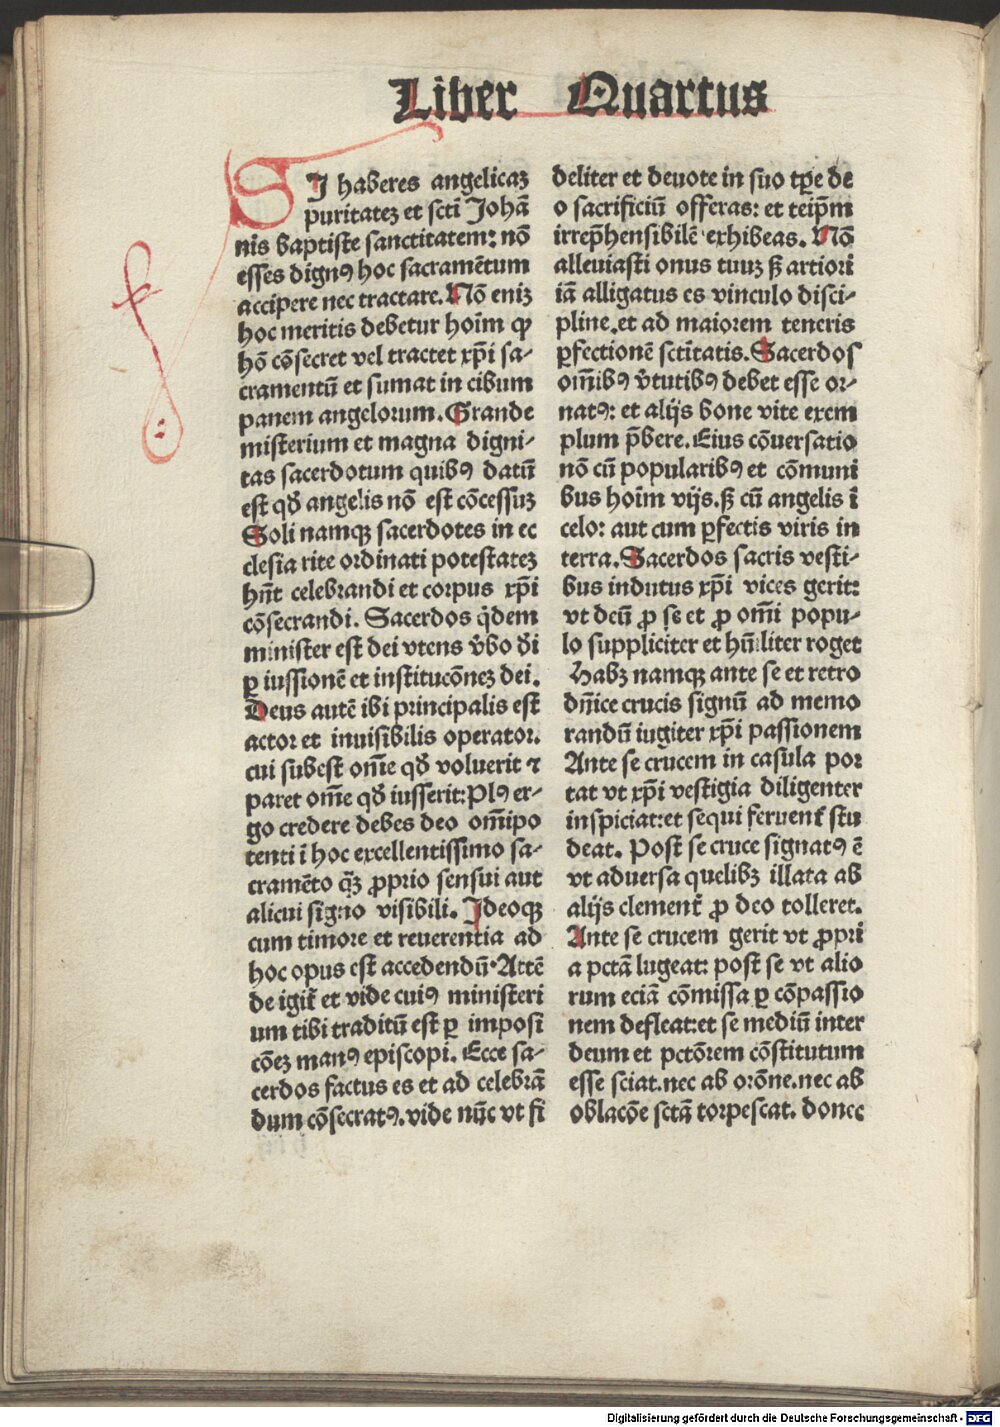 Liber Quartus
SI haberes angelicaꝫ
puritateꝫ et sctī Johā
nis baptiste sanctitatem: nō
esses dignꝰ hoc sacramētum
accipere nec tractare. Nō eniꝫ
hoc meritis debetur hoīm ꝙ
hō cōsecret vel tractet xp̄i sa⸗
cramentū et sumat in cibum
panem angelorum. Grande
misterium et magna digni⸗
tas sacerdotum quibꝰ datū
est qḋ angelis nō est cōcessuꝫ
Soli namqꝫ sacerdotes in ec
clesia rite ordinati potestateꝫ
hn̄t celebrandi et corpus xp̄i
cōsecrandi. Sacerdos q̇dem
minister est dei vtens v̄bo ḋi
ꝑ iussionē et institucōneꝫ dei.
Deus autē ibi principalis est
actor et inuisibilis operator.
cui subest om̄e qḋ voluerit ⁊
paret om̄e qḋ iusserit: Plꝰ er⸗
go credere debes deo om̄ipo
tenti ī hoc excellentissimo sa⸗
cramēto q̄ꝫ ꝓprio sensui aut
alicui signo visibili. Ideoqꝫ
cum timore et reuerentia ad
hoc opus est accedendū. Attē
de igit̄ et vide cuiꝰ ministeri
um tibi traditū est ꝑ imposi
cōeꝫ manꝰ episcopi. Ecce sa⸗
cerdos factus es et ad celebrā
dum cōsecratꝰ. vide nūc vt fi
deliter et deuote in suo tp̄e de
o sacrificiū offeras: et teip̄m
irrep̄hensibilē exhibeas. Nō
alleuiasti onus tuuꝫ ꝭ artiori
iā alligatus es vinculo disci⸗
pline. et ad maiorem teneris
ꝑfectionē sctītatis. Sacerdos
om̄ibꝰ v̄tutibꝰ debet esse or⸗
natꝰ: et alijs bone vite exem
plum p̄bere. Eius cōuersatio
nō cū popularibꝰ et cōmuni
bus hoīm vijs. ꝭ cū angelis ī
celo: aut cum ꝑfectis viris in
terra. Sacerdos sacris vesti⸗
bus indutus xp̄i vices gerit:
vt deū ꝓ se et ꝓ om̄i popu⸗
lo suppliciter et hūiliter roget
Habꝫ namqꝫ ante se et retro
dn̄ice crucis signū ad memo
randū iugiter xp̄i passionem
Ante se crucem in casula por
tat vt xp̄i vestigia diligenter
inspiciat: et sequi feruent̄ stu
deat. Post se cruce signatꝰ ē
vt aduersa quelibꝫ illata ab
alijs clement̄ ꝓ deo tolleret.
Ante se crucem gerit vt ꝓpri
a pctā lugeat: post se vt alio
rum eciā cōmissa ꝑ cōpassio
nem defleat: et se mediū inter
deum et pctōrem cōstitutum
esse sciat. nec ab orōne. nec ab
oblacōe sctā torpescat. donec
Digitalisierung gefördert durch die Deutsche Forschungsgemeinschaft - DFG